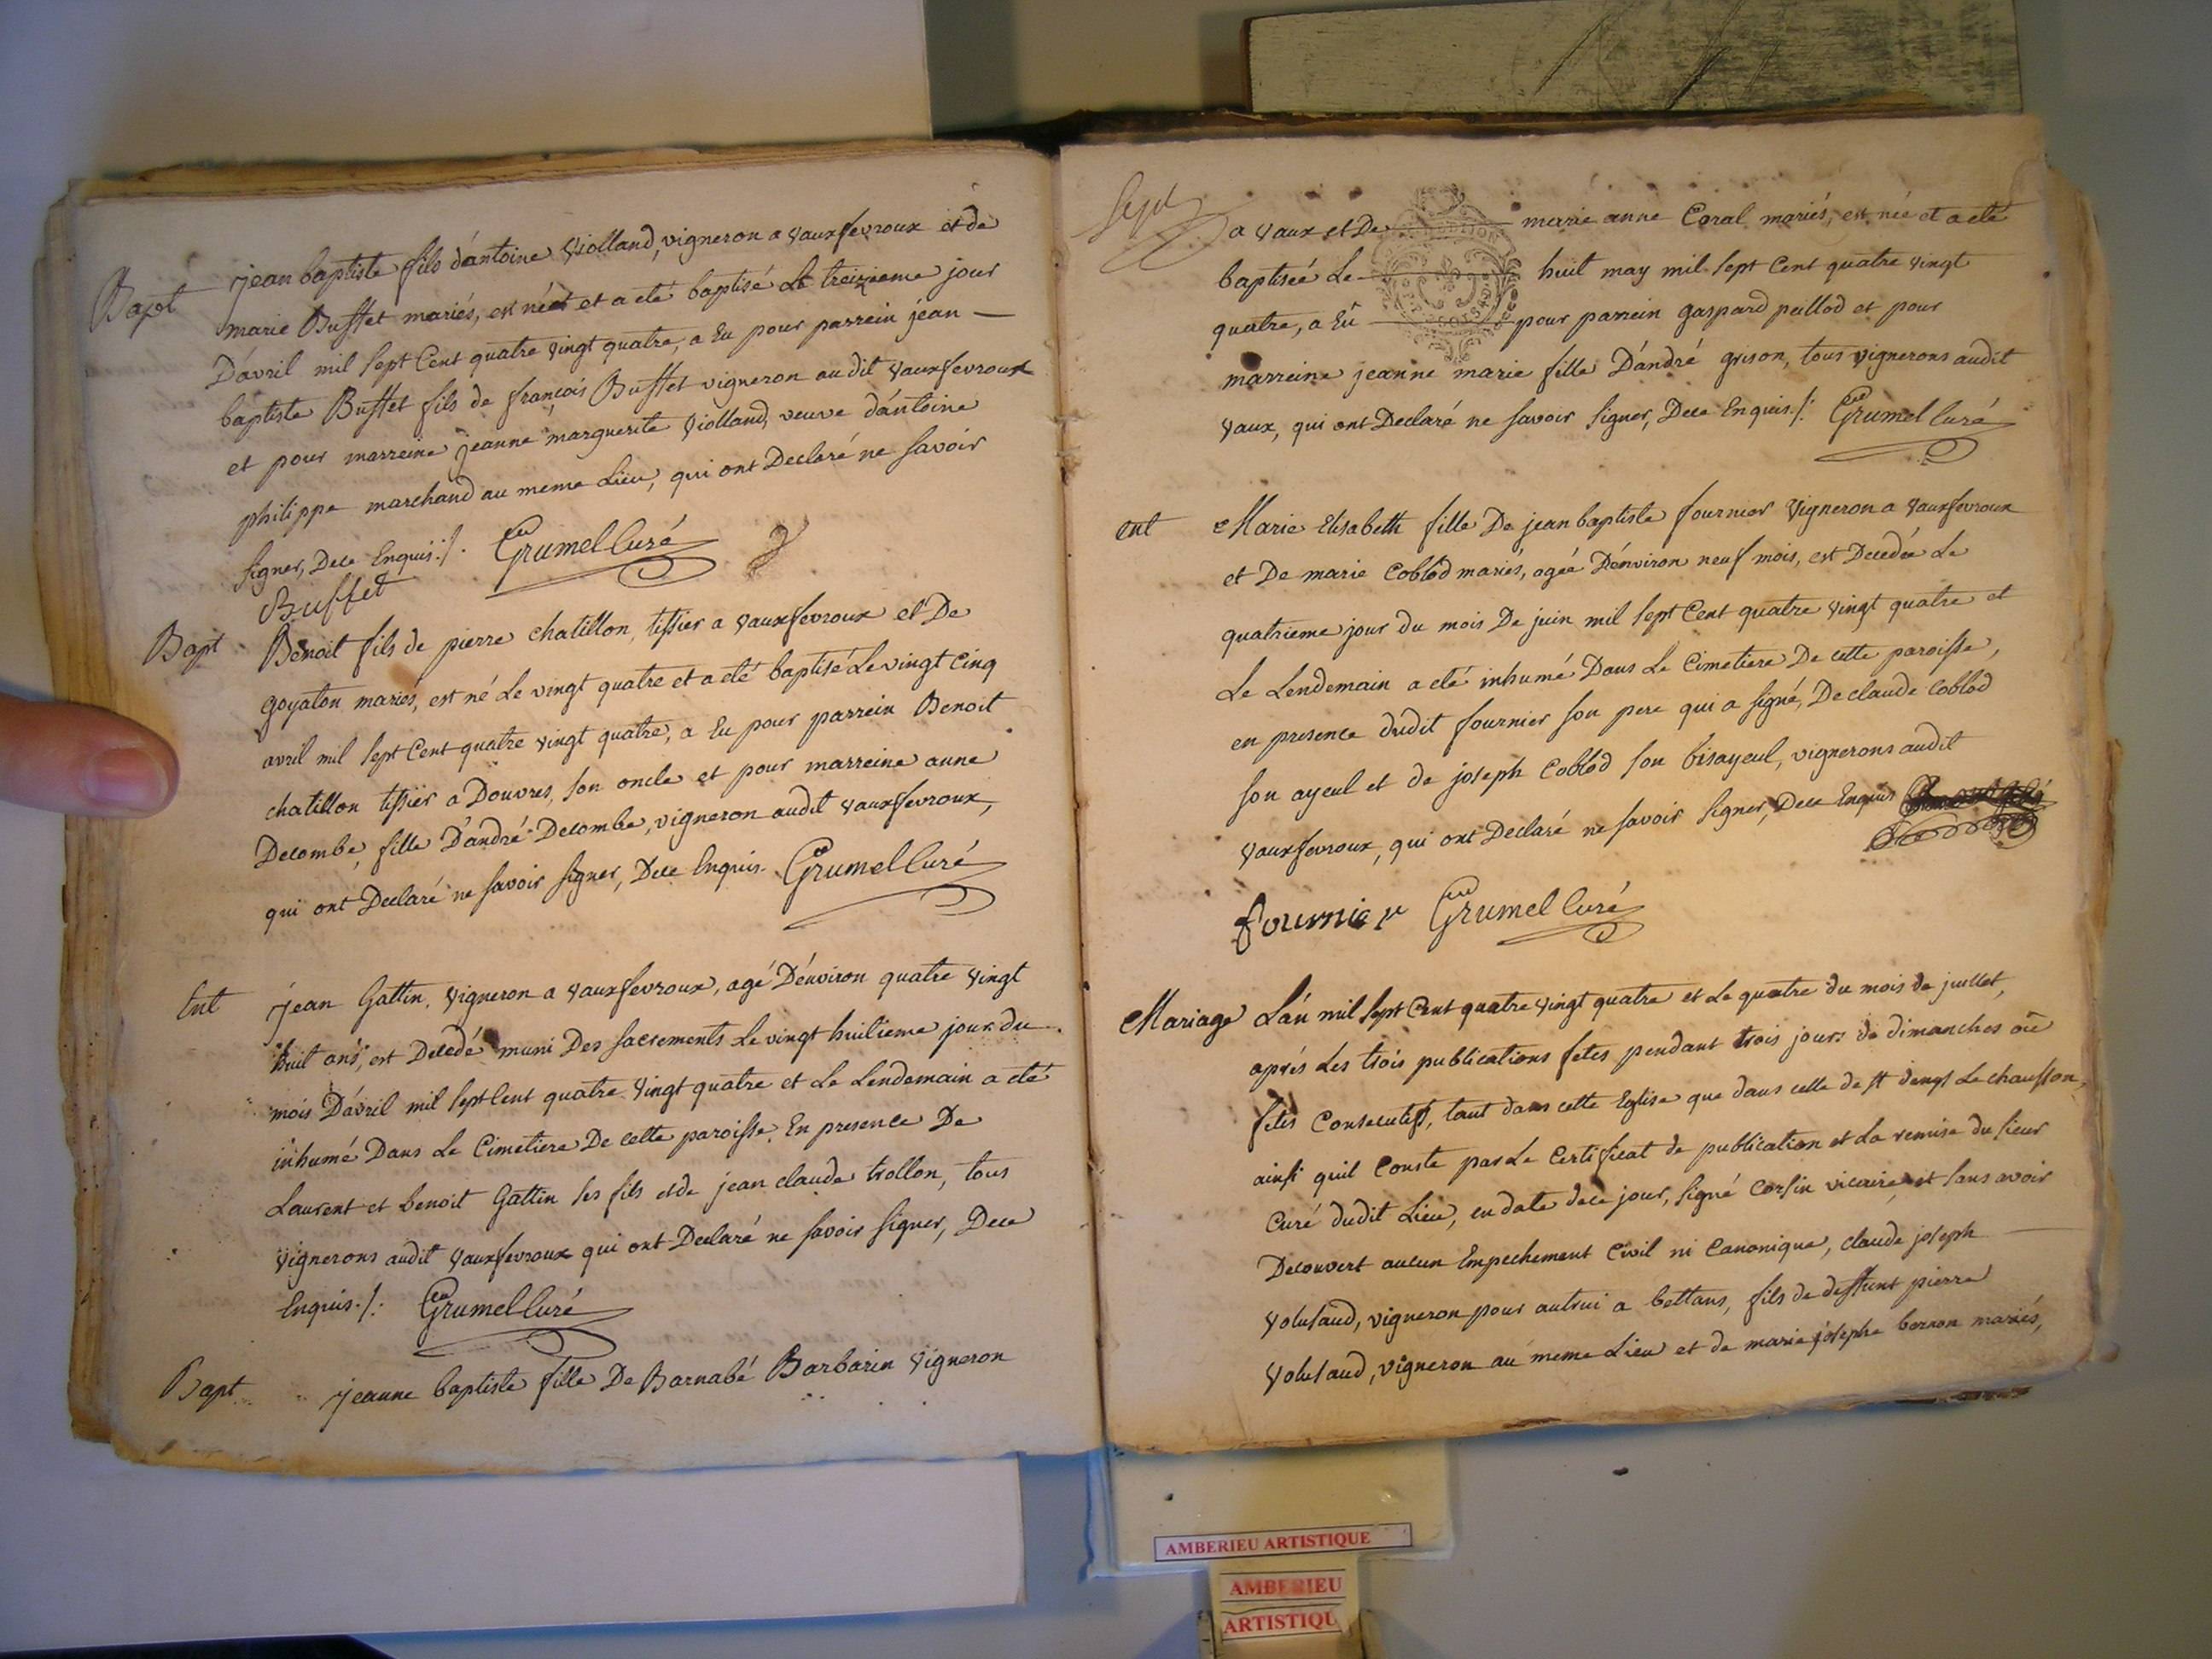 Bapt
jean baptiste fils d'antoine Violland, vigneron a vauxfevroux et de
marie Buffet mariés, est né et a eté baptisé Le treizieme jour
D'avril mil sept Cent quatre vingt quatre, a Eu pour parrein jean
baptiste Buffet fils de françois Buffet vigneron audit vauxfevroux
et pour marreine jeanne marguerite Violland, veuve d'antoine
philippe marchand au meme Lieu, qui ont Declaré ne savoir
signer, Dece Enquis ./. Grumel Curé
Buffet
Bapt
Benoit fils de pierre chatillon, tissier a vauxfevroux et De
goyaton mariés, est né Le vingt quatre et a eté baptisé Le vingt Cinq
avril mil sept Cent quatre vingt quatre, a Eu pour parrein Benoit
chatillon tissier a Douvres, son oncle et pour marreine anne
Decombe, fille D'andré Decombe, vigneron audit vauxfevroux,
qui ont Declaré ne savoir signer, Dece Enquis. Grumel Curé
Ent
jean Gattin, vigneron a vauxfevroux, agé D'environ quatre vingt
huit ans, est Decedé muni Des sacrements Le vingt huitieme jour du
mois D'avril mil sept Cent quatre vingt quatre et Le Lendemain a eté
inhumé Dans Le Cimetiere De cette paroisse, En presence De
Laurent et benoit Gattin ses fils et de jean claude trollon, tous
vignerons audit vauxfevroux qui ont Declaré ne savoir signer, Dece
Enquis ./. Grumel Curé
Bapt
jeanne baptiste fille De Barnabé Barbarin vigneron
sept
a vaux et De marie anne Coral mariés, est née et a eté
baptiseé Le huit may mil sept Cent quatre vingt
quatre, a Eû pour parrein gaspard peillod et pour
marreine jeanne marie fille D'andré grison, tous vignerons audit
vaux, qui ont Declaré ne savoir signer, Dece Enquis ./. Grumel Curé
Ent
Marie Elisabeth fille De jean baptiste fournier vigneron a vauxfevroux
et De marie Coblod mariés, ageé D'environ neuf mois, est Decedeé Le
quatrieme jour du mois De juin mil sept Cent quatre vingt quatre et
Le Lendemain a eté inhumé Dans Le Cimetiere De cette paroisse,
en presence dudit fournier son pere qui a signé, De claude Coblod
son ayeul et de joseph Coblod son bisayeul, vignerons audit
vauxfevroux, qui ont Declaré ne savoir signer, Dece Enquis
fournier Grumel Curé
Mariage
L'an mil sept Cent quatre vingt quatre et Le quatre du mois de juillet,
aprés Les trois publications fetes pendant trois jours de dimanches oû
fetes Consecutifs, tant dans cette Eglise que dans celle de st denys Le chausson,
ainsi quil Conste par Le Certificat de publication et La remise du sieur
Curé dudit Lieu, en date de ce jour, signé Corsin vicaire et sans avoir
Decouvert aucun Empechement Civil ni Canonique, claude joseph
Volusaud, vigneron pour autrui a bettans, fils de deffunt pierre
Volusaud, vigneron au meme Lieu et de marie josephe bernon mariés,
AMBERIEU ARTISTIQUE
AMBERIEU
ARTISTIQU